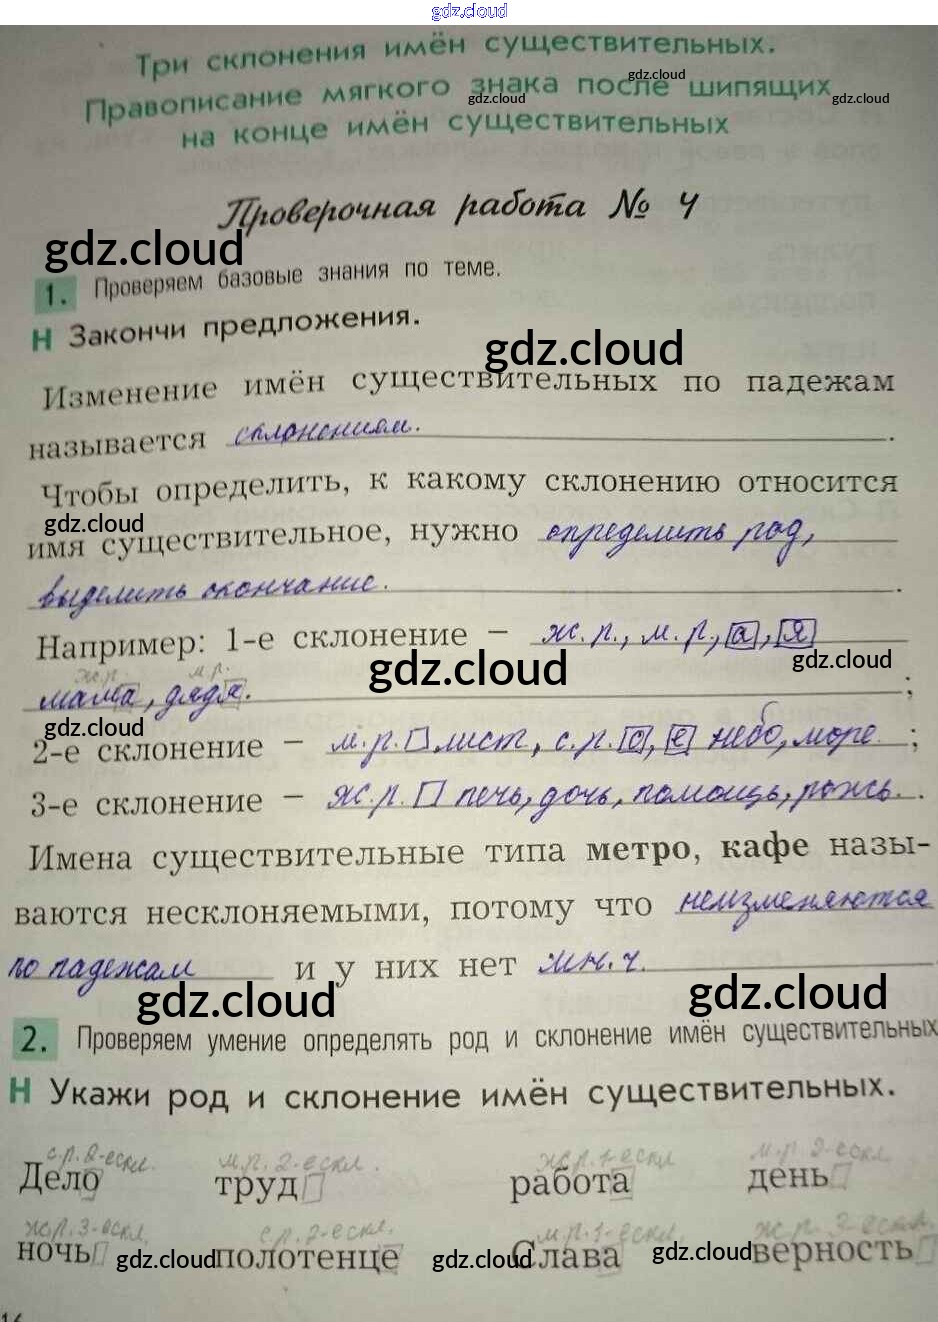 gdz.cloud
Три склонения имён существительных.
gdz.cloud
Правописание мягкого знака после шипящих
gdz.cloud gdz.cloud
на конце имён существительных
Проверочная работа № 4
gdz.cloud
1. Проверяем базовые знания по теме.
Н Закончи предложения.
gdz.cloud
Изменение имён существительных по падежам
называется склонением.
Чтобы определить, к какому склонению относится
gdz.cloud
имя существительное, нужно определить род,
выделить окончание.
Например: 1-е склонение – ж.р., м.р., а, я
gdz.cloud gdz.cloud
ж.р. м.р.
мама, дядя. ;
gdz.cloud
2-е склонение – м.р. лист, с.р. о, е небо, море ;
3-е склонение – ж.р. печь, дочь, помощь, рожь.
Имена существительные типа метро, кафе назы-
ваются несклоняемыми, потому что неизменяются
по падежам и у них нет мн.ч.
gdz.cloud gdz.cloud
2. Проверяем умение определять род и склонение имён существительных
Н Укажи род и склонение имён существительных.
с.р. 2-ескл. м.р. 2-ескл. ж.р. 1-ескл м.р 2-ескл
Дело труд работа день
ж.р. 3-ескл. с.р. 2-ескл. м.р. 1-ескл ж.р.
ночь полотенце Слава верность
gdz.cloud gdz.cloud gdz.cloud
16